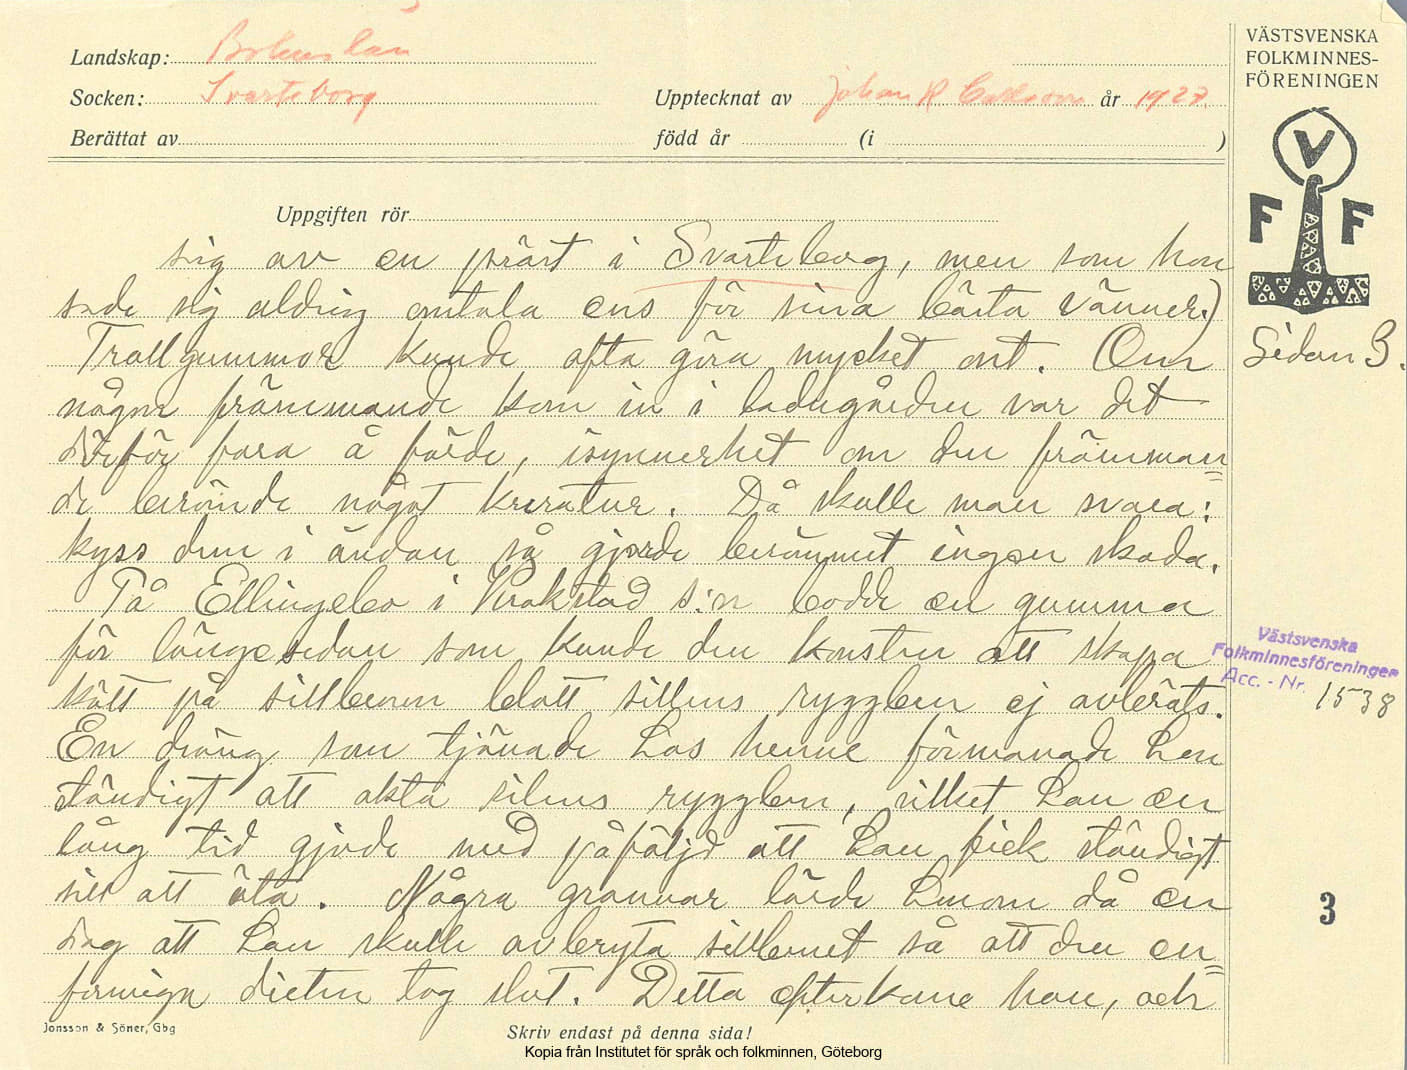 Landskap: Bohuslän
Socken: Svarteborg
Upptecknat av Johan R Carlsson år 1927.
Berättat av
född år (i )
VÄSTSVENSKA
FOLKMINNES-
FÖRENINGEN
V
F F
Uppgiften rör
sig av en präst i Svarteborg, men som hon
sade sig aldrig omtala ens för sina bästa vänner.)
Trollgummor kunde ofta göra mycket ont. Om
Sidan 3.
någon främmande kom in i ladugården var det
därför fara å färde, isynnerhet om den främman=
de berömde något kreatur. Då skulle man svara:
kyss den i ändan så gjorde berömmet ingen skada.
På Ellingebo i Krokstad s:n bodde en gumma
för länge sedan som kunde den konsten att skapa
kött på sillbenen blott sillens ryggben ej avbröts.
En dräng som tjänade hos henne förmanade hon
ständigt att akta silens ryggben, vilket han en
lång tid gjode med påföljd att han fick ständigt
sill att äta. Några grannar lärde honom då en
dag att han skulle avbryta sillbenet så att den en=
formiga dieten tog slut. Detta efterkom han, och
Västsvenska
Folkminnesföreningen
Acc. - Nr. 1538
3
Jonsson & Söner, Gbg
Skriv endast på denna sida!
Kopia från Institutet för språk och folkminnen, Göteborg